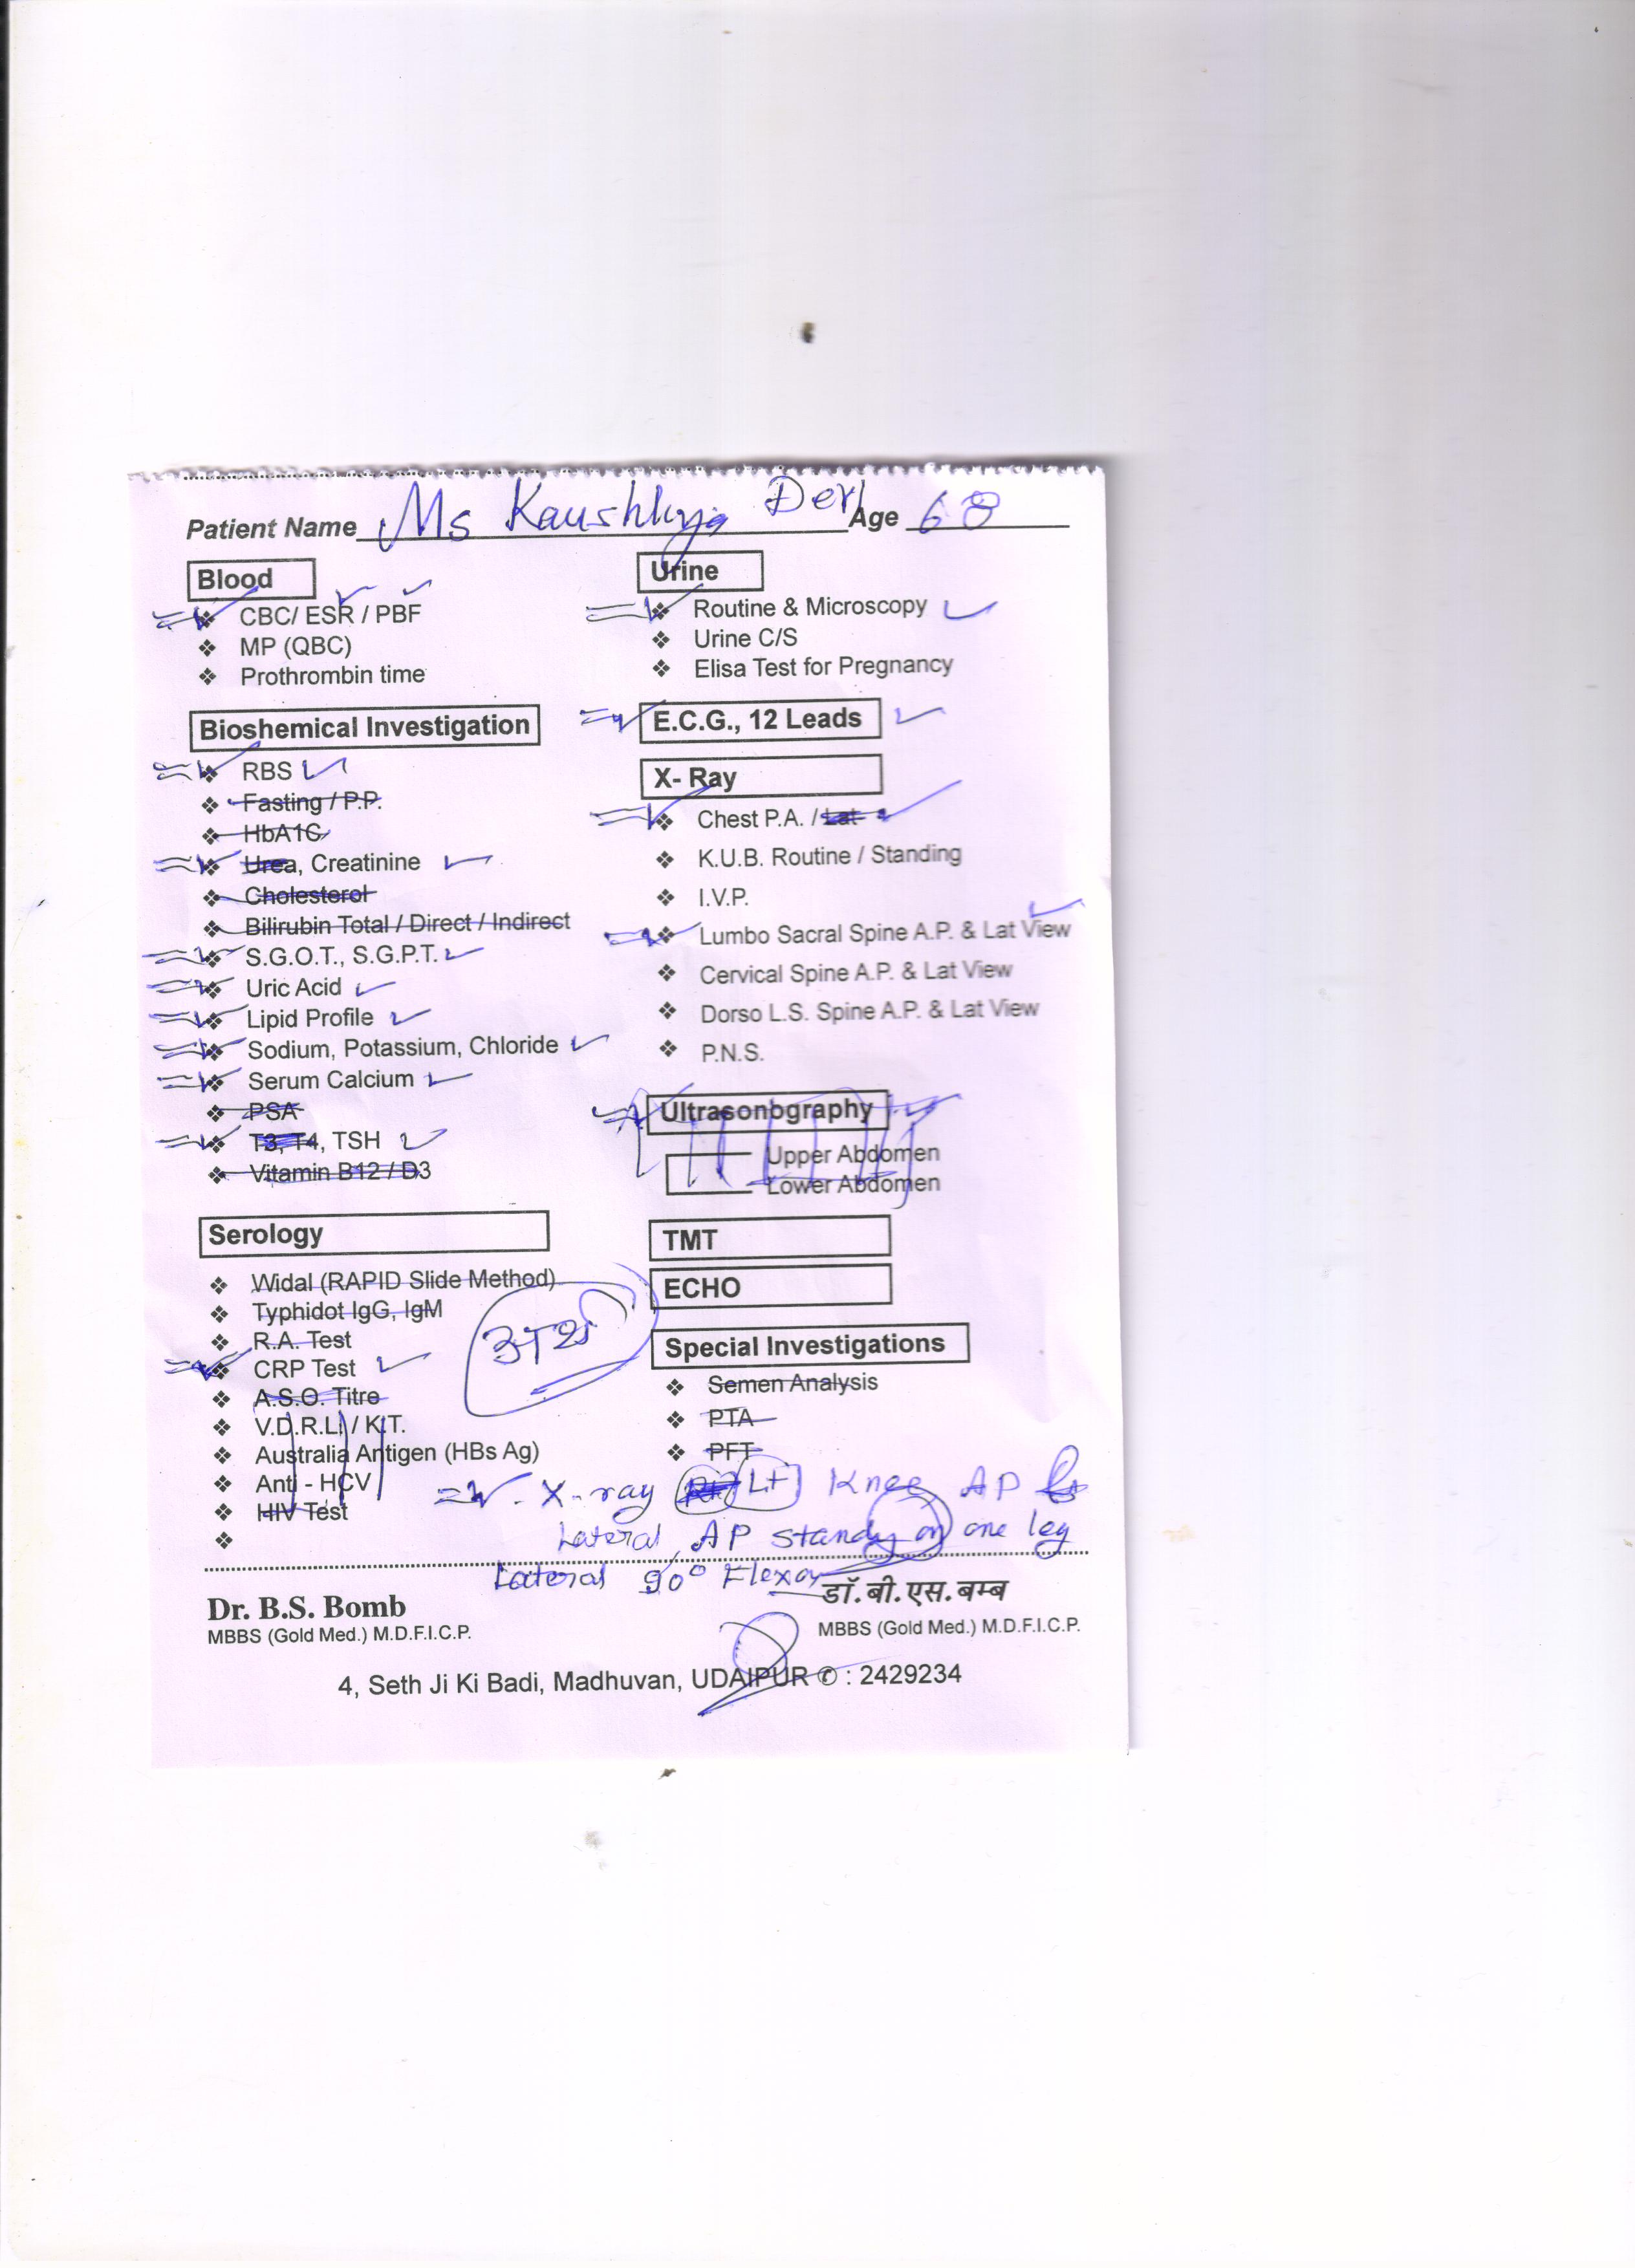 Patient Name Ms Kaushlya Devi Age 68
Blood
CBC/ ESR / PBF
MP (QBC)
Prothrombin time
Bioshemical Investigation
RBS
Fasting / P.P.
HbA1C
Urea, Creatinine
Cholesterol
Bilirubin Total / Direct / Indirect
S.G.O.T., S.G.P.T.
Uric Acid
Lipid Profile
Sodium, Potassium, Chloride
Serum Calcium
PSA
T3, T4, TSH
Vitamin B12 / D3
Serology
Widal (RAPID Slide Method)
Typhidot IgG, IgM
R.A. Test
CRP Test
A.S.O. Titre
V.D.R.L. / K.T.
Australia Antigen (HBs Ag)
Anti - HCV
HIV Test
Urine
Routine & Microscopy
Urine C/S
Elisa Test for Pregnancy
E.C.G., 12 Leads
X- Ray
Chest P.A. / Lat
K.U.B. Routine / Standing
I.V.P.
Lumbo Sacral Spine A.P. & Lat View
Cervical Spine A.P. & Lat View
Dorso L.S. Spine A.P. & Lat View
P.N.S.
Ultrasonography
Upper Abdomen
Lower Abdomen
TMT
ECHO
Special Investigations
Semen Analysis
PTA
PFT
X-ray Lt Knee AP
Lateral, AP standy on one leg
Lateral 90° Flexon
Dr. B.S. Bomb
MBBS (Gold Med.) M.D.F.I.C.P.
डॉ. बी. एस. बम्ब
MBBS (Gold Med.) M.D.F.I.C.P.
4, Seth Ji Ki Badi, Madhuvan, UDAIPUR ✆ : 2429234